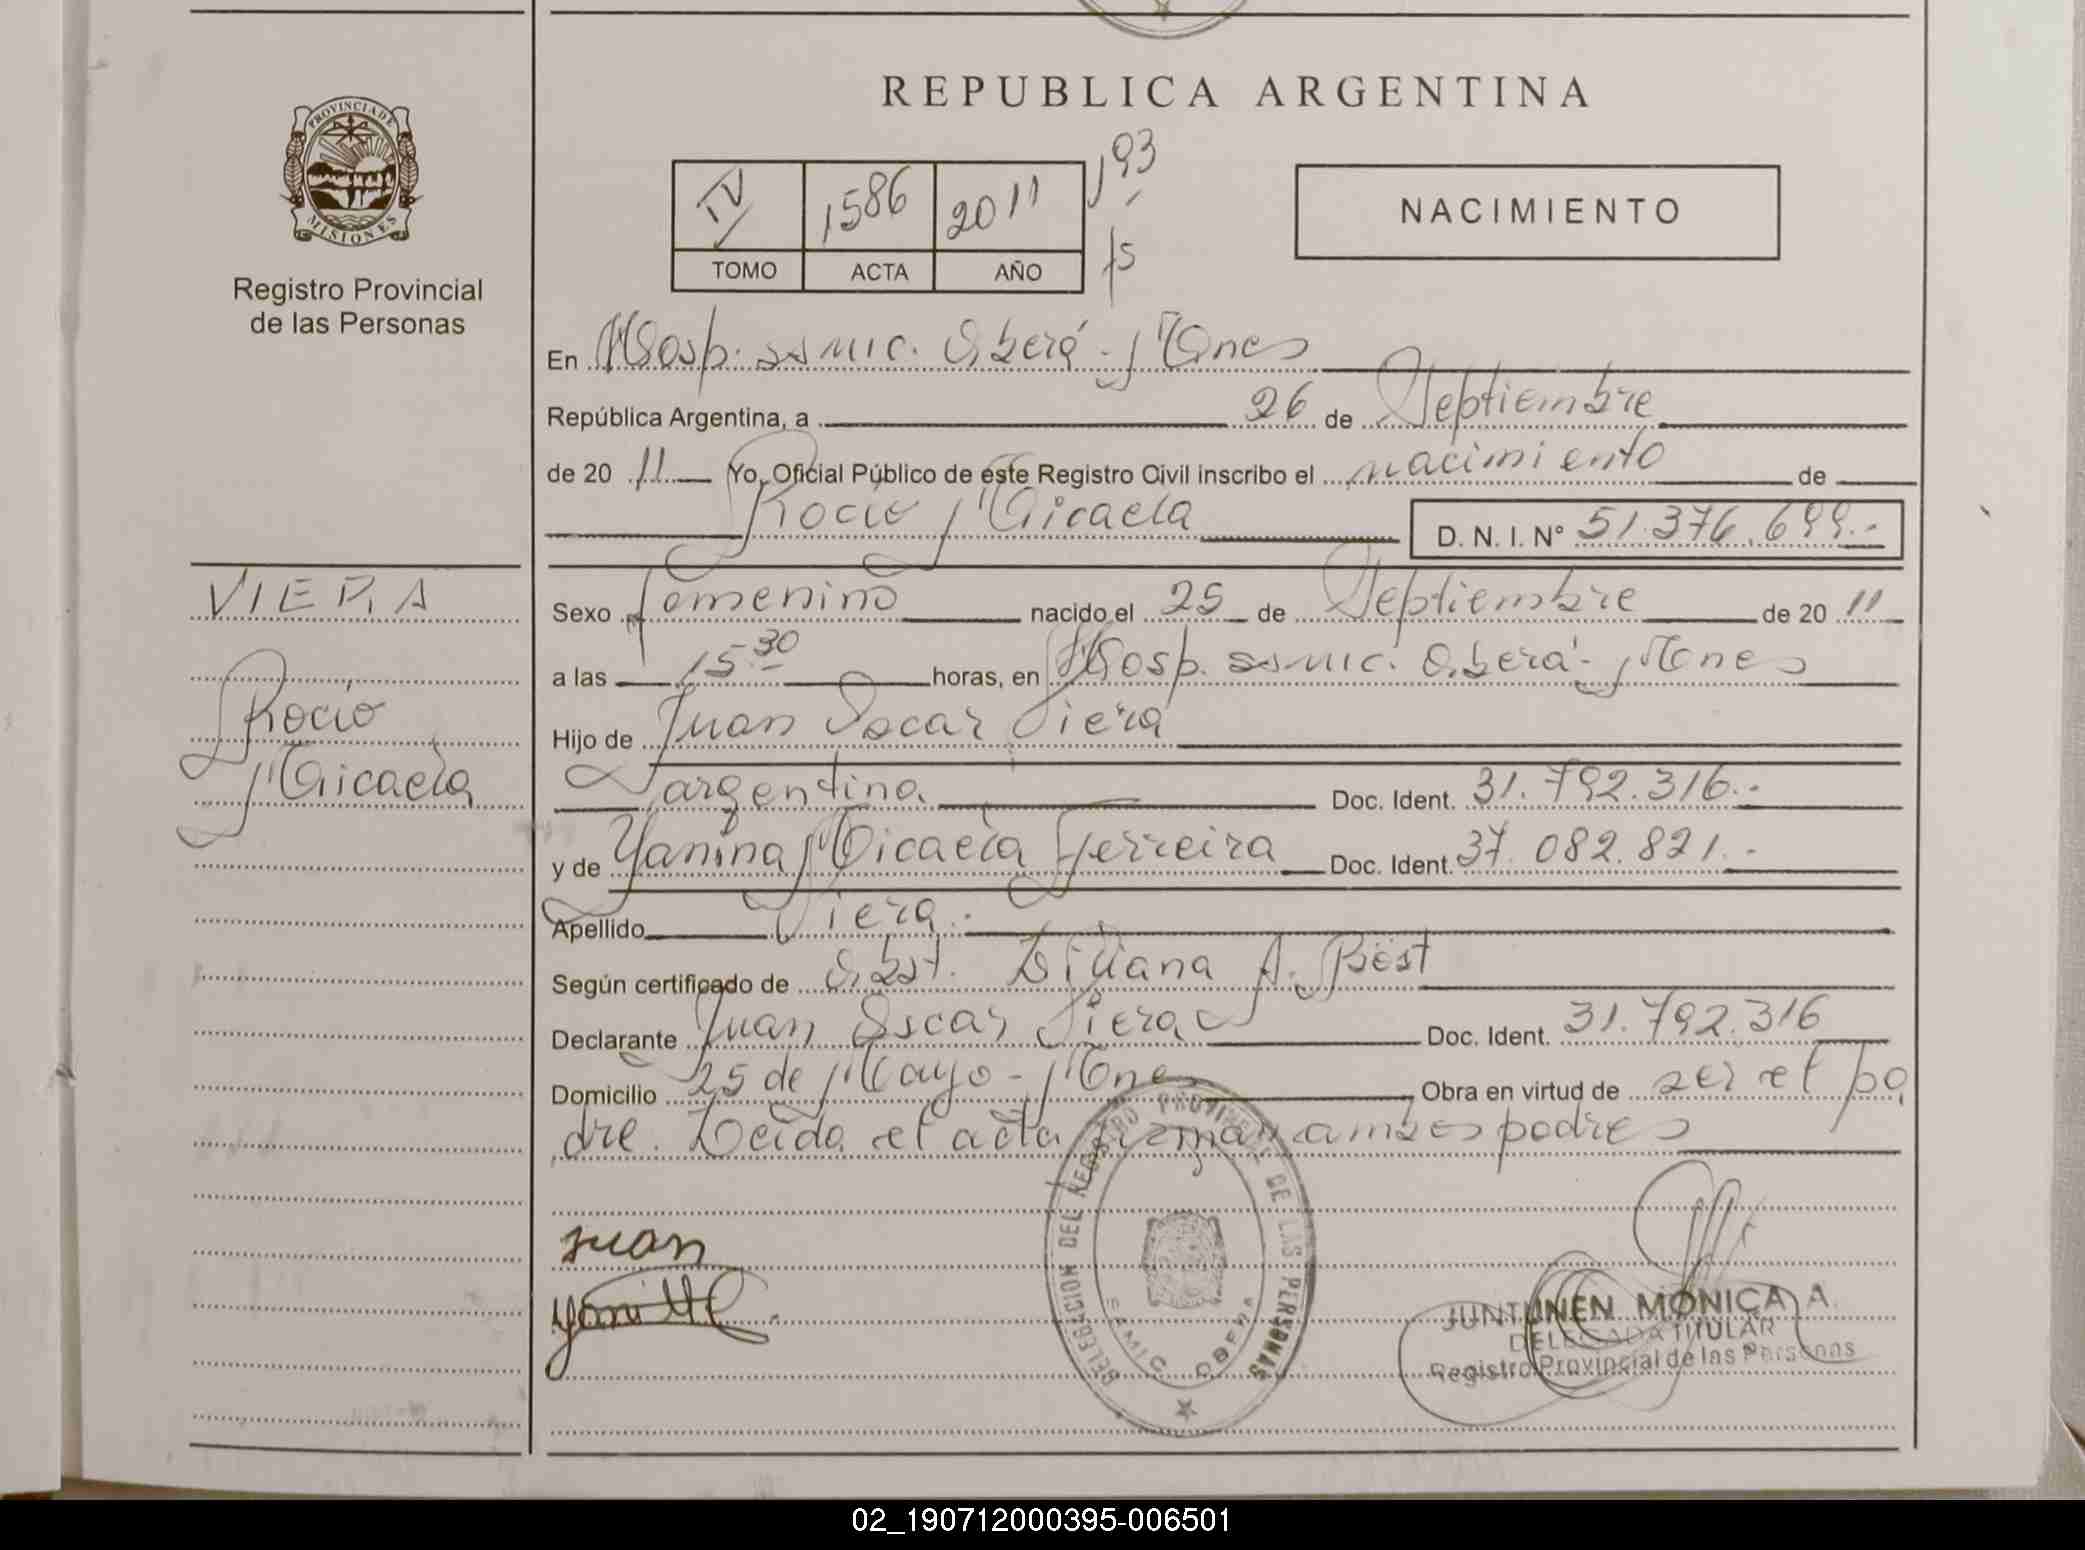 REPUBLICA ARGENTINA
PROVINCIA DE
MISIONES
Registro Provincial
de las Personas
IV 1586 2011 193
TOMO ACTA AÑO fs
NACIMIENTO
En Hosp. SAMIC. Oberá - Mnes
República Argentina, a 26 de Septiembre
de 20 11 Yo, Oficial Público de este Registro Civil inscribo el nacimiento de
Rocio Micaela D. N. I. N° 51.376.699.-
VIERA
Rocio
Micaela
Sexo femenino nacido el 25 de Septiembre de 20 11
a las 15.30 horas, en Hosp. SAMIC. Oberá - Mnes
Hijo de Juan Oscar Viera
argentina Doc. Ident. 31.792.316.-
y de Yanina Micaela Ferreira Doc. Ident. 37.082.821.-
Apellido Viera.
Según certificado de Obst. Liliana A. Best
Declarante Juan Oscar Viera Doc. Ident. 31.792.316
Domicilio 25 de Mayo - Mnes Obra en virtud de ser el pa
dre. Leida el acta firman ambos padres
Juan
DELEGACION DEL REGISTRO PROVINCIAL DE LAS PERSONAS
SAMIC. OBERA
JUNTUNEN MONICA A.
DELEGADA TITULAR
Registro Provincial de las Personas
02_190712000395-006501